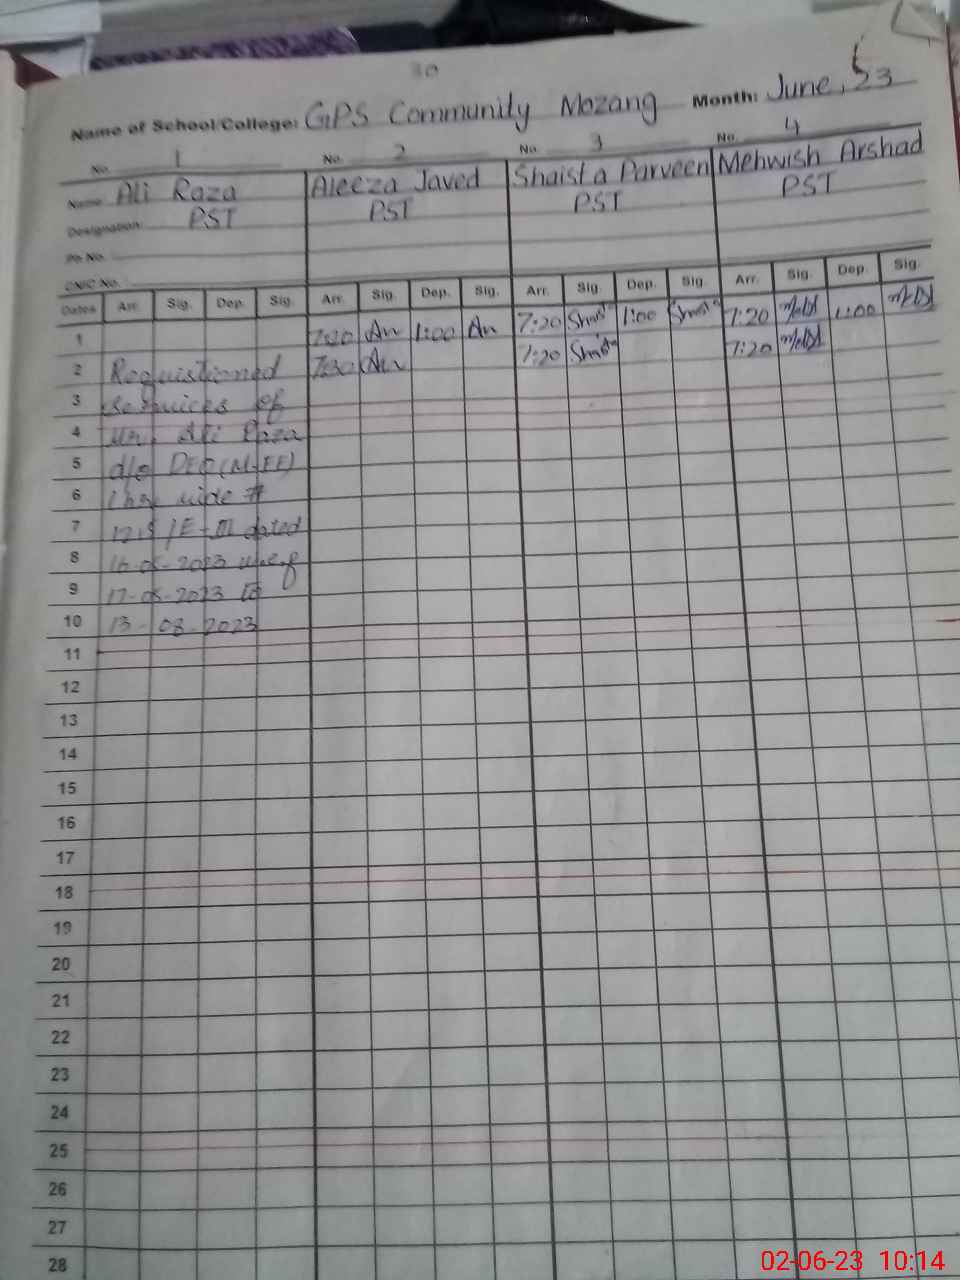 30
Name of School/College: GPS Community Mozang Month: June, 23
No. 1 No. 2 No. 3 No. 4
Name Ali Raza Aleeza Javed Shaista Parveen Mehwish Arshad
Designation PST PST PST PST
P# No.
CNIC No.
Dates Arr. Sig. Dep. Sig. Arr. Sig. Dep. Sig. Arr. Sig. Dep. Sig. Arr. Sig. Dep. Sig.
1 7:20 1:00 7:20 1:00 7:20 1:00
2 Requistioned 7:30 7:20 7:20
3 services of
4 Mr. Ali Raza
5 d/o DEO(M-EE)
6 Lhr vide #
7 /E-III dated
8 16-05-2023 w.e.f
9 17-05-2023 to
10 13-08-2023
11
12
13
14
15
16
17
18
19
20
21
22
23
24
25
26
27
28
02-06-23 10:14